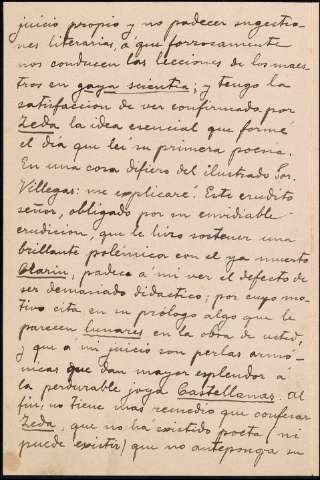 juicio propio y no padecer sugestio-
nes literarias, á que forzosamente
nos conducen las lecciones de los maes-
tros en gaya scientia; y tengo la
satisfacción de ver confirmada por
Zeda la idea esencial que formé
el día que leí su primera poesía.
En una cosa difiero del ilustrado Sor.
Villegas: me explicaré. Este erudito
señor, obligado por su envidiable
erudición, que le hizo sostener una
brillante polémica con el ya muerto
Clarín, padece a mi ver el defecto de
ser demasiado didactico; por cuyo mo-
tivo cita en su prólogo algo que le
parecen lunares en la obra de usted,
y que á mi juicio son perlas armó-
nicas que dan mayor esplendor á
la perdurable joya Castellanas. Al
fin, no tiene mas remedio que confesar
Zeda, que no ha existido poeta (ni
puede existir) que no anteponga su